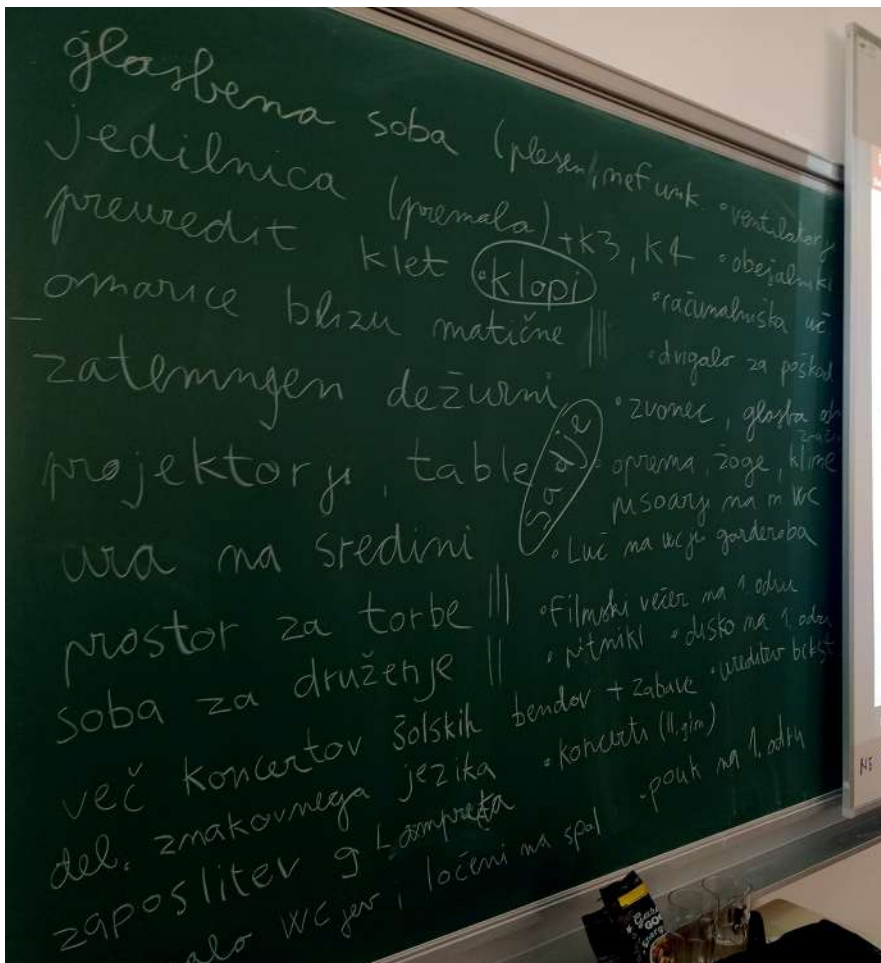 glasbena soba (plesen, nefunk • ventilatorji
jedilnica (premala) + k3, k4 • obešalniki
preuredit klet • klopi
• računalniška uč.
omarice blizu matične |||
• dvigalo za poškod
zatemnjen dežurni
• zvonec, glasba
projektorji, table
sadje
• oprema, žoge, klime
pisoarji na m WC
ura na sredini
• Luč na wcju garderoba
prostor za torbe |||
• Filmski večer na 1. odru
soba za druženje ||
• pitnikl • disko na 1. odru
več koncertov šolskih bendov + zabave • ureditev
del. znakovnega jezika • koncerti (II. gim)
zaposlitev g Lampreta
• pouk na 1. odru
wcjev i ločeni na spol
NE